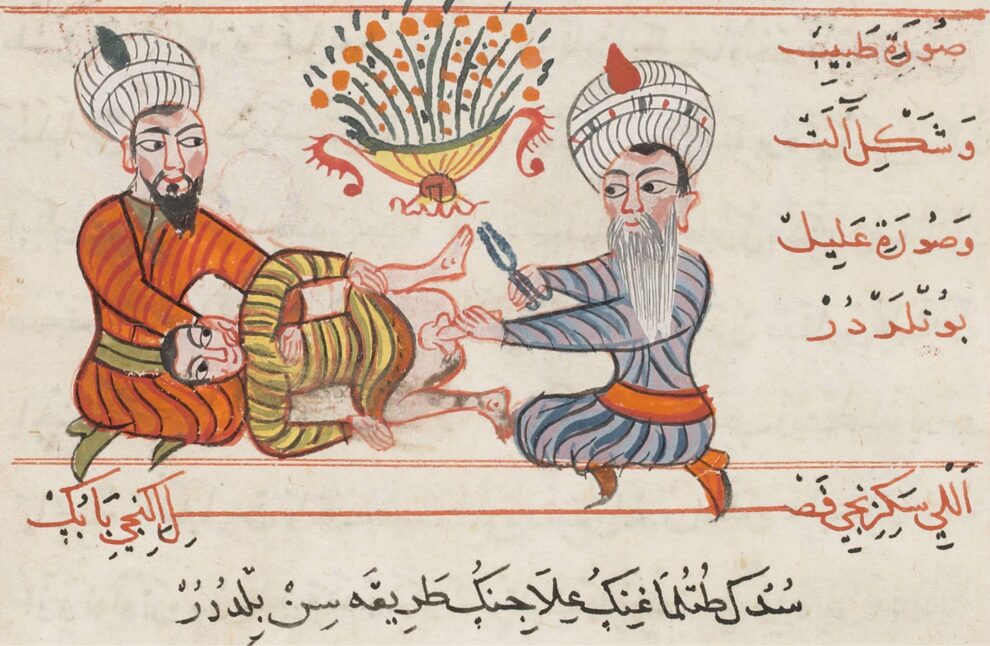 صُورَةِ طَبِيبْ
وَشَكْلِ آلَتْ
وَصُورَةِ عَلِيلْ
بُونْلَرْدُرْ
اَللِّي سَكِزِنْجِي فَصْلْ اِكِنْجِي بَابُكْ
سُدُكْ طُتُلْمَاغِنُكْ عِلَاجِنُكْ طَرِيقَه سِنْ بِلْدُرُرْ